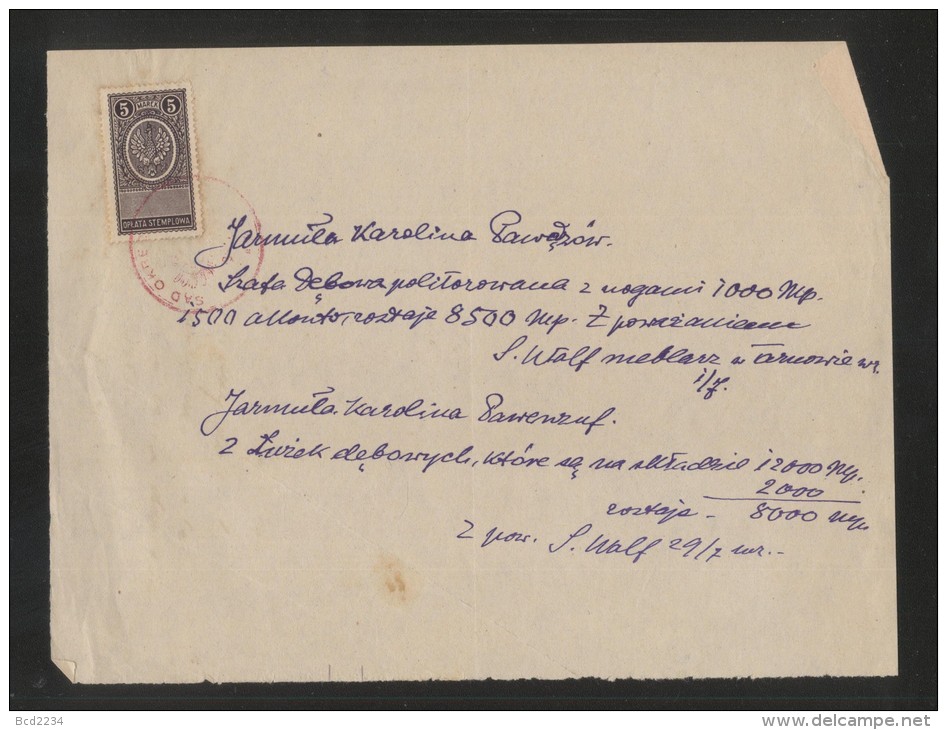 5 MARCA 5
OPŁATA STEMPLOWA
SĄD OKRĘ
Jarmuła Karolina Pawęzów.
Szafa Dębowa politorowana z nogami 1000 Mp.
1500 a Konto, rostaje 8500 Mp. Z poważaniem
S. Wolf meblarz w Tarnowie wr.
i/7.
Jarmuła Karolina Pawenzuf.
2 Łużek dębowych, które są na składzie 12000 Mp.
2000
rostaje - 8000 Mp.
Z pow. S. Wolf 29/7 wr.-
Bcd2234
www.delcampe.net